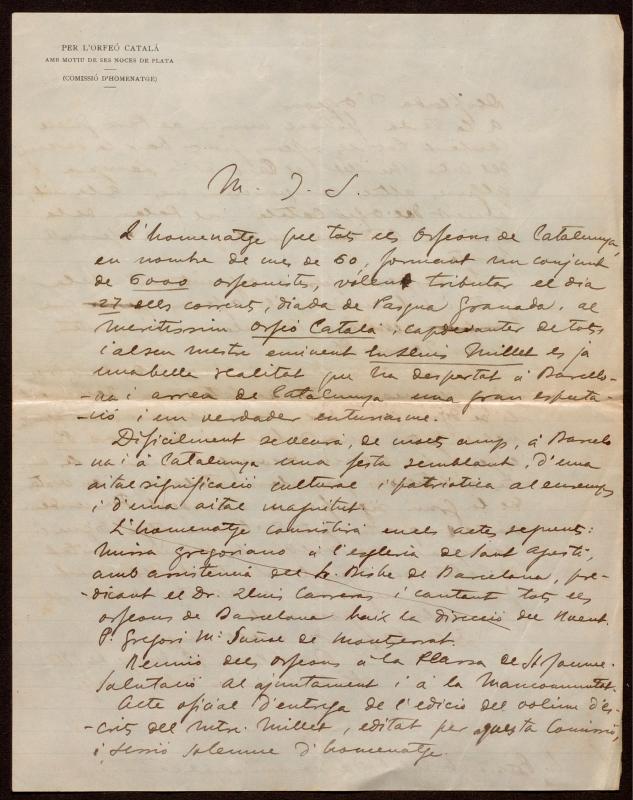 PER L'ORFEÓ CATALÁ
AMB MOTIU DE SES NOCES DE PLATA
(COMISSIÓ D'HOMENATGE)
M. I. S.
L'homenatge que tots els Orfeons de Catalunya,
en nombre de mes de 60, formant un conjunt
de 6000 orfeonistes, volen tributar el dia
27 dels corrents, diada de Pasqua Granada, al
meritissim Orfeó Catalá, capdevanter de tots
i al seu mestre eminent Lluis Millet es ja
una bella realitat que ha despertat á Barcelo-
-na i arreu de Catalunya una gran especta-
-ció i un verdader entusiasme.
Dificilment se veurá, de molts anys, á Barcelo
-na i á Catalunya una festa semblant, d'una
aital significació cultural i patriotica al ensemps
i d'una aital magnitut.
L'homenatge consistirá en els actes seguents:
Missa gregoriana á l'esglesia de Sant Agustí,
amb assistencia del Sr. Bisbe de Barcelona, pre-
-dicant el Dr. Lluis Carreras i cantant tots els
orfeons de Barcelona baix la direcció del Rvent.
P. Gregori Mª Suñol de Montserrat.
Reunió dels orfeons á la Plassa de St Jaume.
Salutació al ajuntament i á la Mancomunitat.
Acte oficial d'entrega de l'edició del volum d'es-
-crits del mtre. Millet, editat per aquesta Comissió,
i, sessió solemne d'homenatge.